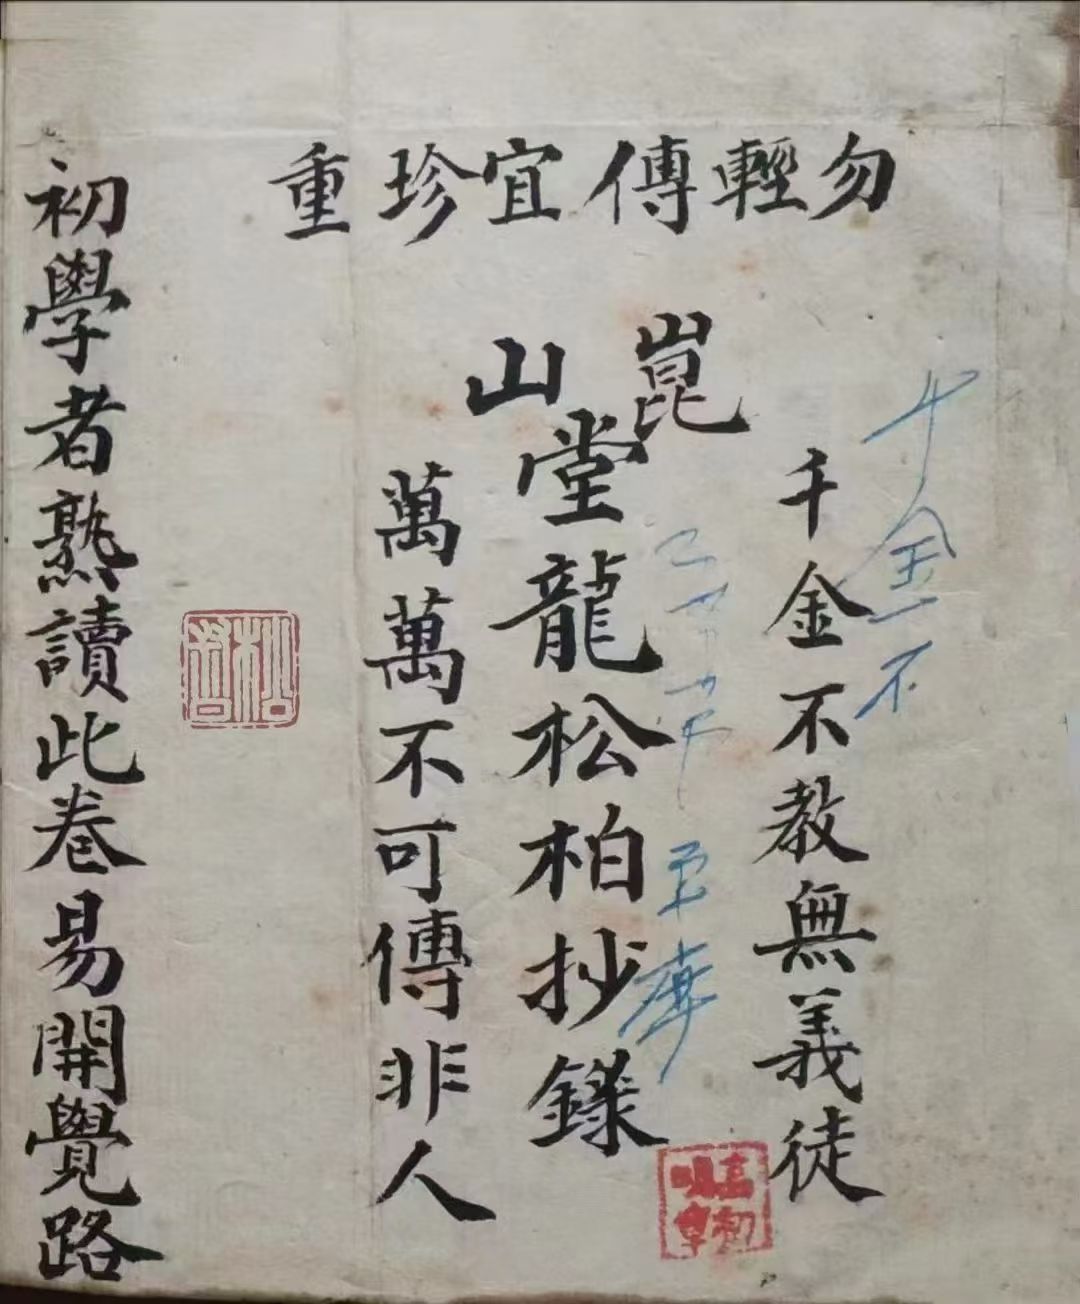 勿輕傳宜珍重
千金不教無義徒
崑山堂龍松柏抄錄
萬萬不可傳非人
初學者熟讀此卷易開覺路
千金不